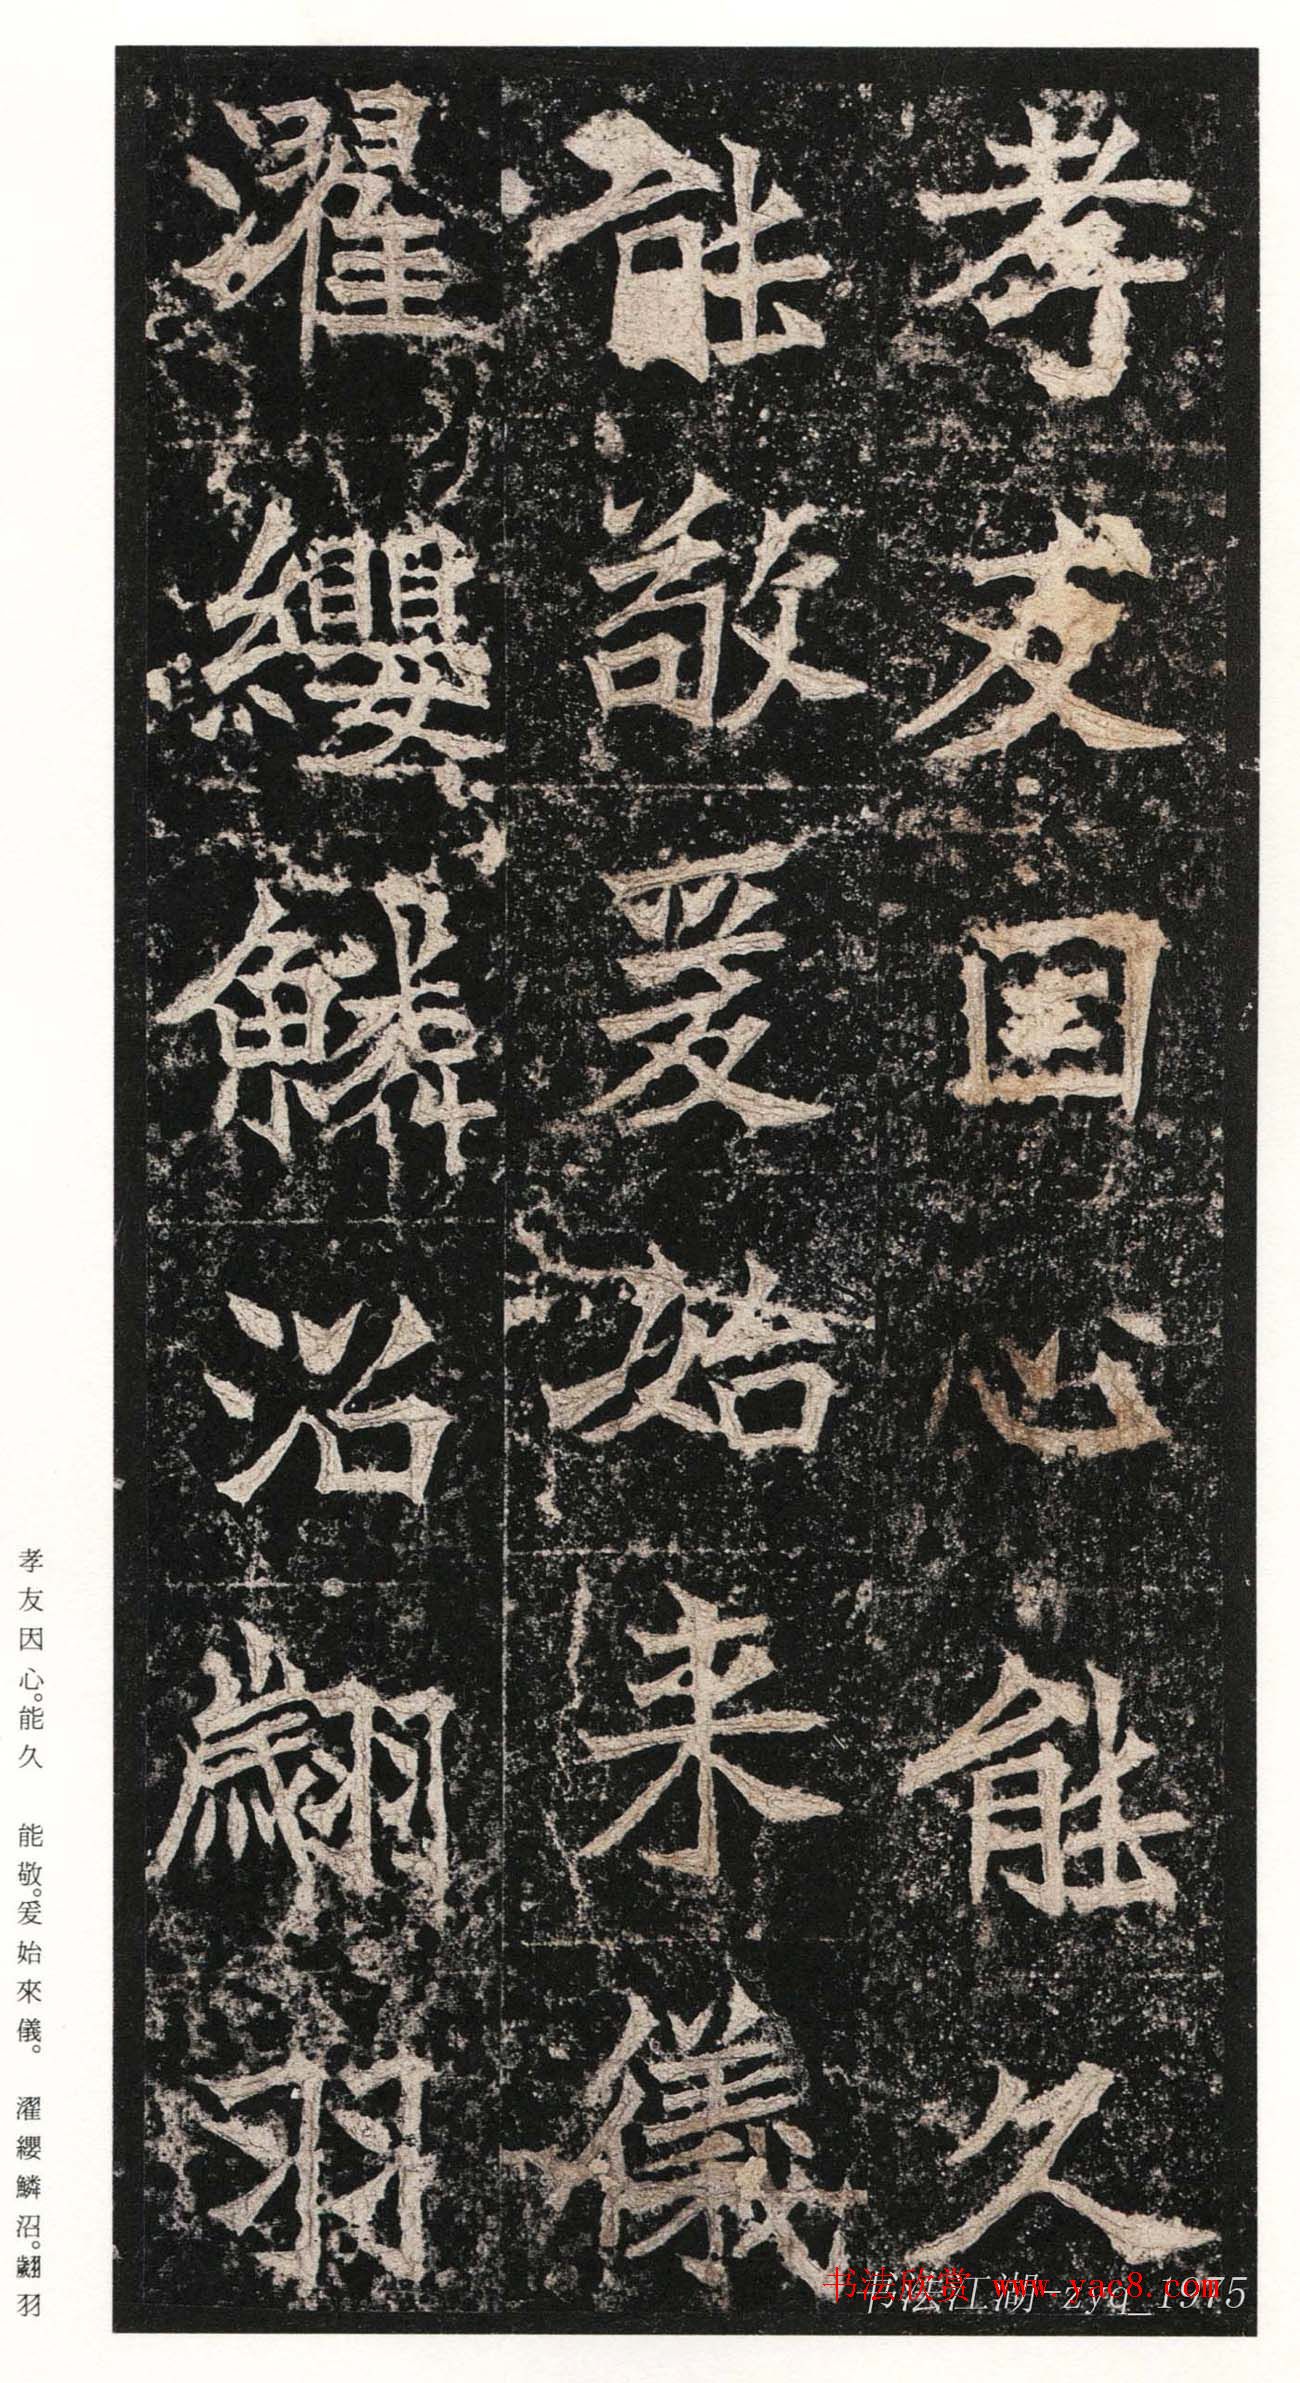 孝友因心能久
能敬爰始来儀
濯纓鱗沼翽羽
孝友因心。能久　能敬。爰始來儀。　濯纓鱗沼。翽羽
书法欣赏 www.yac8.com
书法江湖-zyq_1975